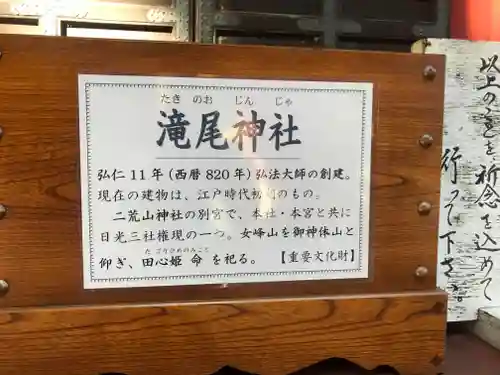 たきのおじんじゃ
滝尾神社
弘仁11年(西暦820年)弘法大師の創建。
現在の建物は、江戸時代初期のもの。
二荒山神社の別宮で、本社・本宮と共に
日光三社権現の一つ。女峰山を御神体山と
たごりひめのみこと
仰ぎ、田心姫命を祀る。【重要文化財】
以上のことを祈念を込めて
行って下さい。